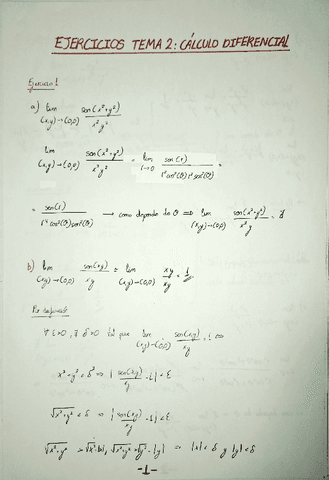 EJERCICIOS TEMA 2: CÁLCULO DIFERENCIAL
Ejercicio 1
a) lim (x,y)→(0,0) sen(x²+y²) / x²y²
lim (x,y)→(0,0) sen(x²+y²) / x²y² = lim r→0 sen(r) / r² cos²(θ) r² sen²(θ) =
= sen(r) / r⁴ cos²(θ) sen²(θ) → como depende de θ ⇒ lim (x,y)→(0,0) sen(x²+y²) / x²y = ∄
b) lim (x,y)→(0,0) sen(xy) / xy = lim (x,y)→(0,0) xy / xy = 1
Por
∀ ε>0, ∃ δ>0 tal que lim (x,y)→(0,0) sen(xy) / xy = 1 ⇔
x²+y² < δ² ⇒ | sen(xy) / xy - 1 | < ε
√x²+y² < δ ⇒ | sen(xy) / xy - 1 | < ε
√x²+y² > √x² = |x|, √x²+y² > √y² = |y| ⇒ |x| < δ y |y| < δ
-1-